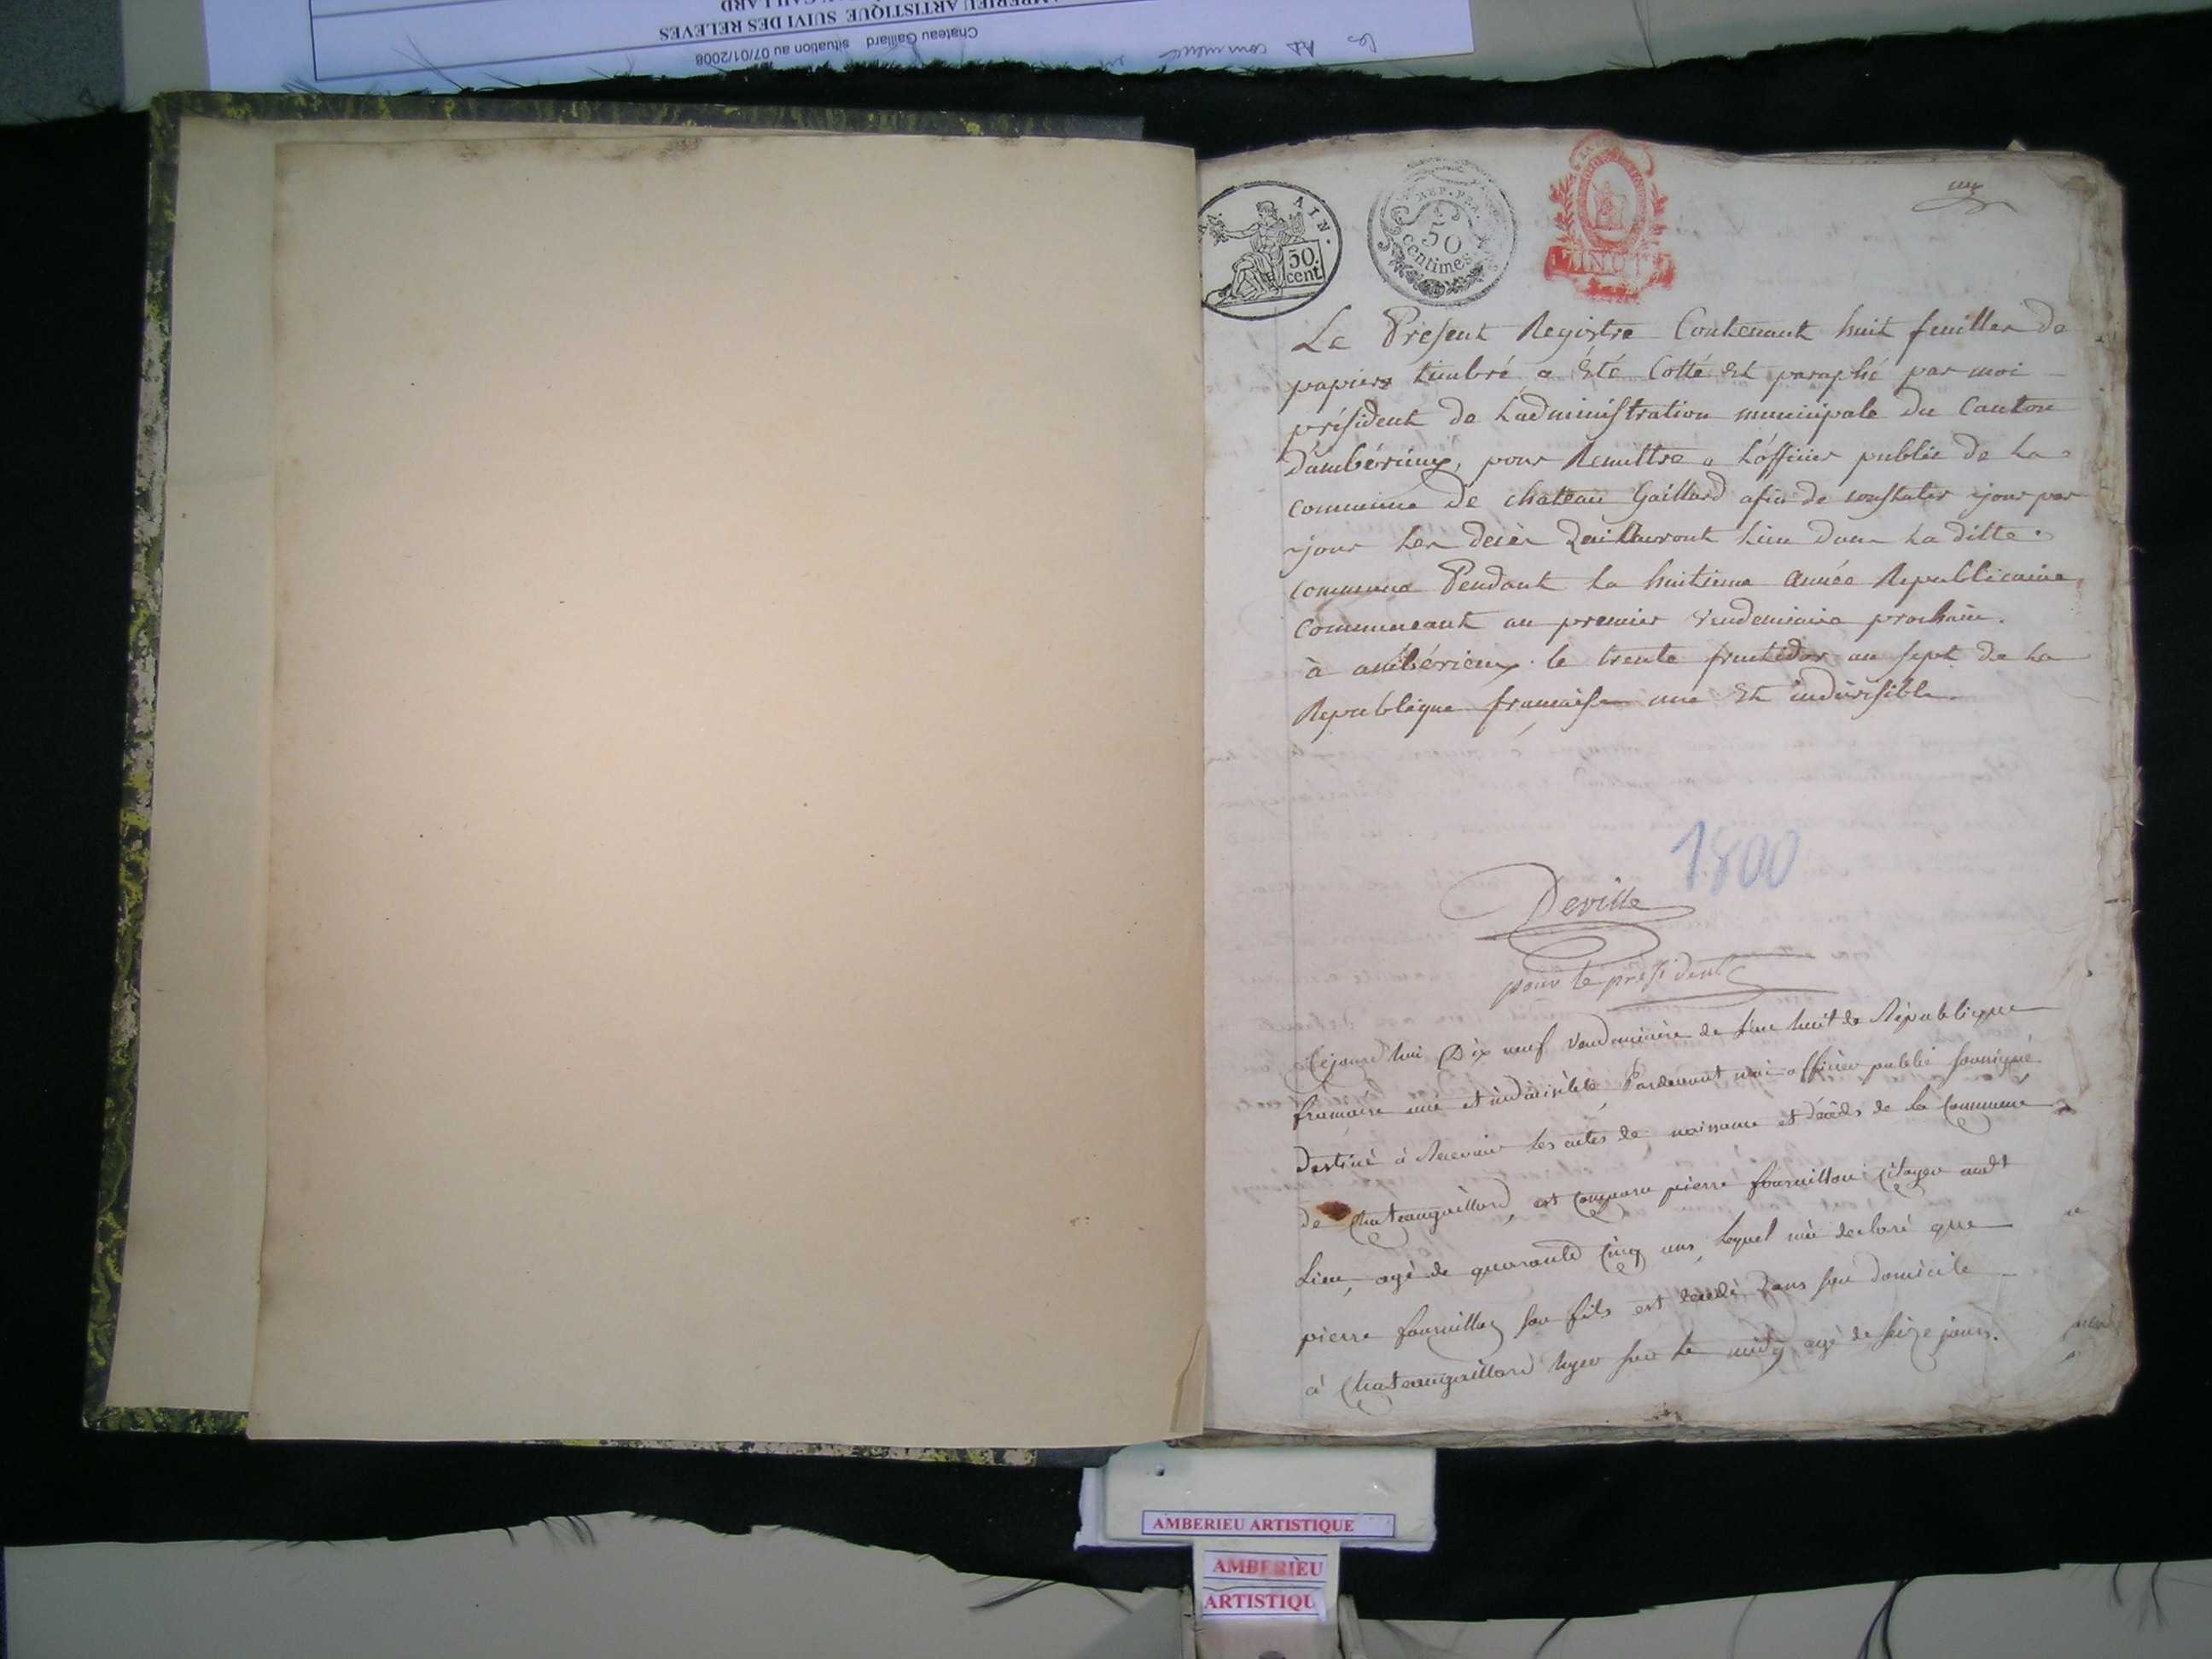 AMBERIEU ARTISTIQUE SUIVI DES RELEVES
Chateau Gaillard situation au 07/01/2008
AIN.
50.
cent
REP. FRA.
50
centimes
Le Présent Registre Contenant huit feuilles de
papiers timbré a été Cotté Et paraphé par moi
président de L'administration municipale du Canton
D'ambérieux, pour Remettre a L'officier public de La
commune de chateau Gaillard afin de constater jour par
jour Les décès Qui Auront Lieu dans La ditte
commune Pendant La huitieme année Republicaine,
Commencant au premier Vendemiaire prochain.
à ambérieux le trente fructidor an sept de La
Republique francaise une Et indivisible.
1800
Deville
pour le président
Cejourd'hui Dix neuf Vendemiaire de l'an huit de République
francaise une et indivisible, Pardevant moi officier public soussigné
destiné à Recevoir les actes de naissance et décès de la Commune
de Chateaugaillard, est comparu pierre fournillon citoyen audt
Lieu, agé de quarante cinq ans, lequel m'a déclaré que
pierre fournillon son fils est décédé Dans son domicile
à Chateaugaillard hyer sur le midy agé de seize jours.
AMBERIEU ARTISTIQUE
AMBERIEU
ARTISTIQU